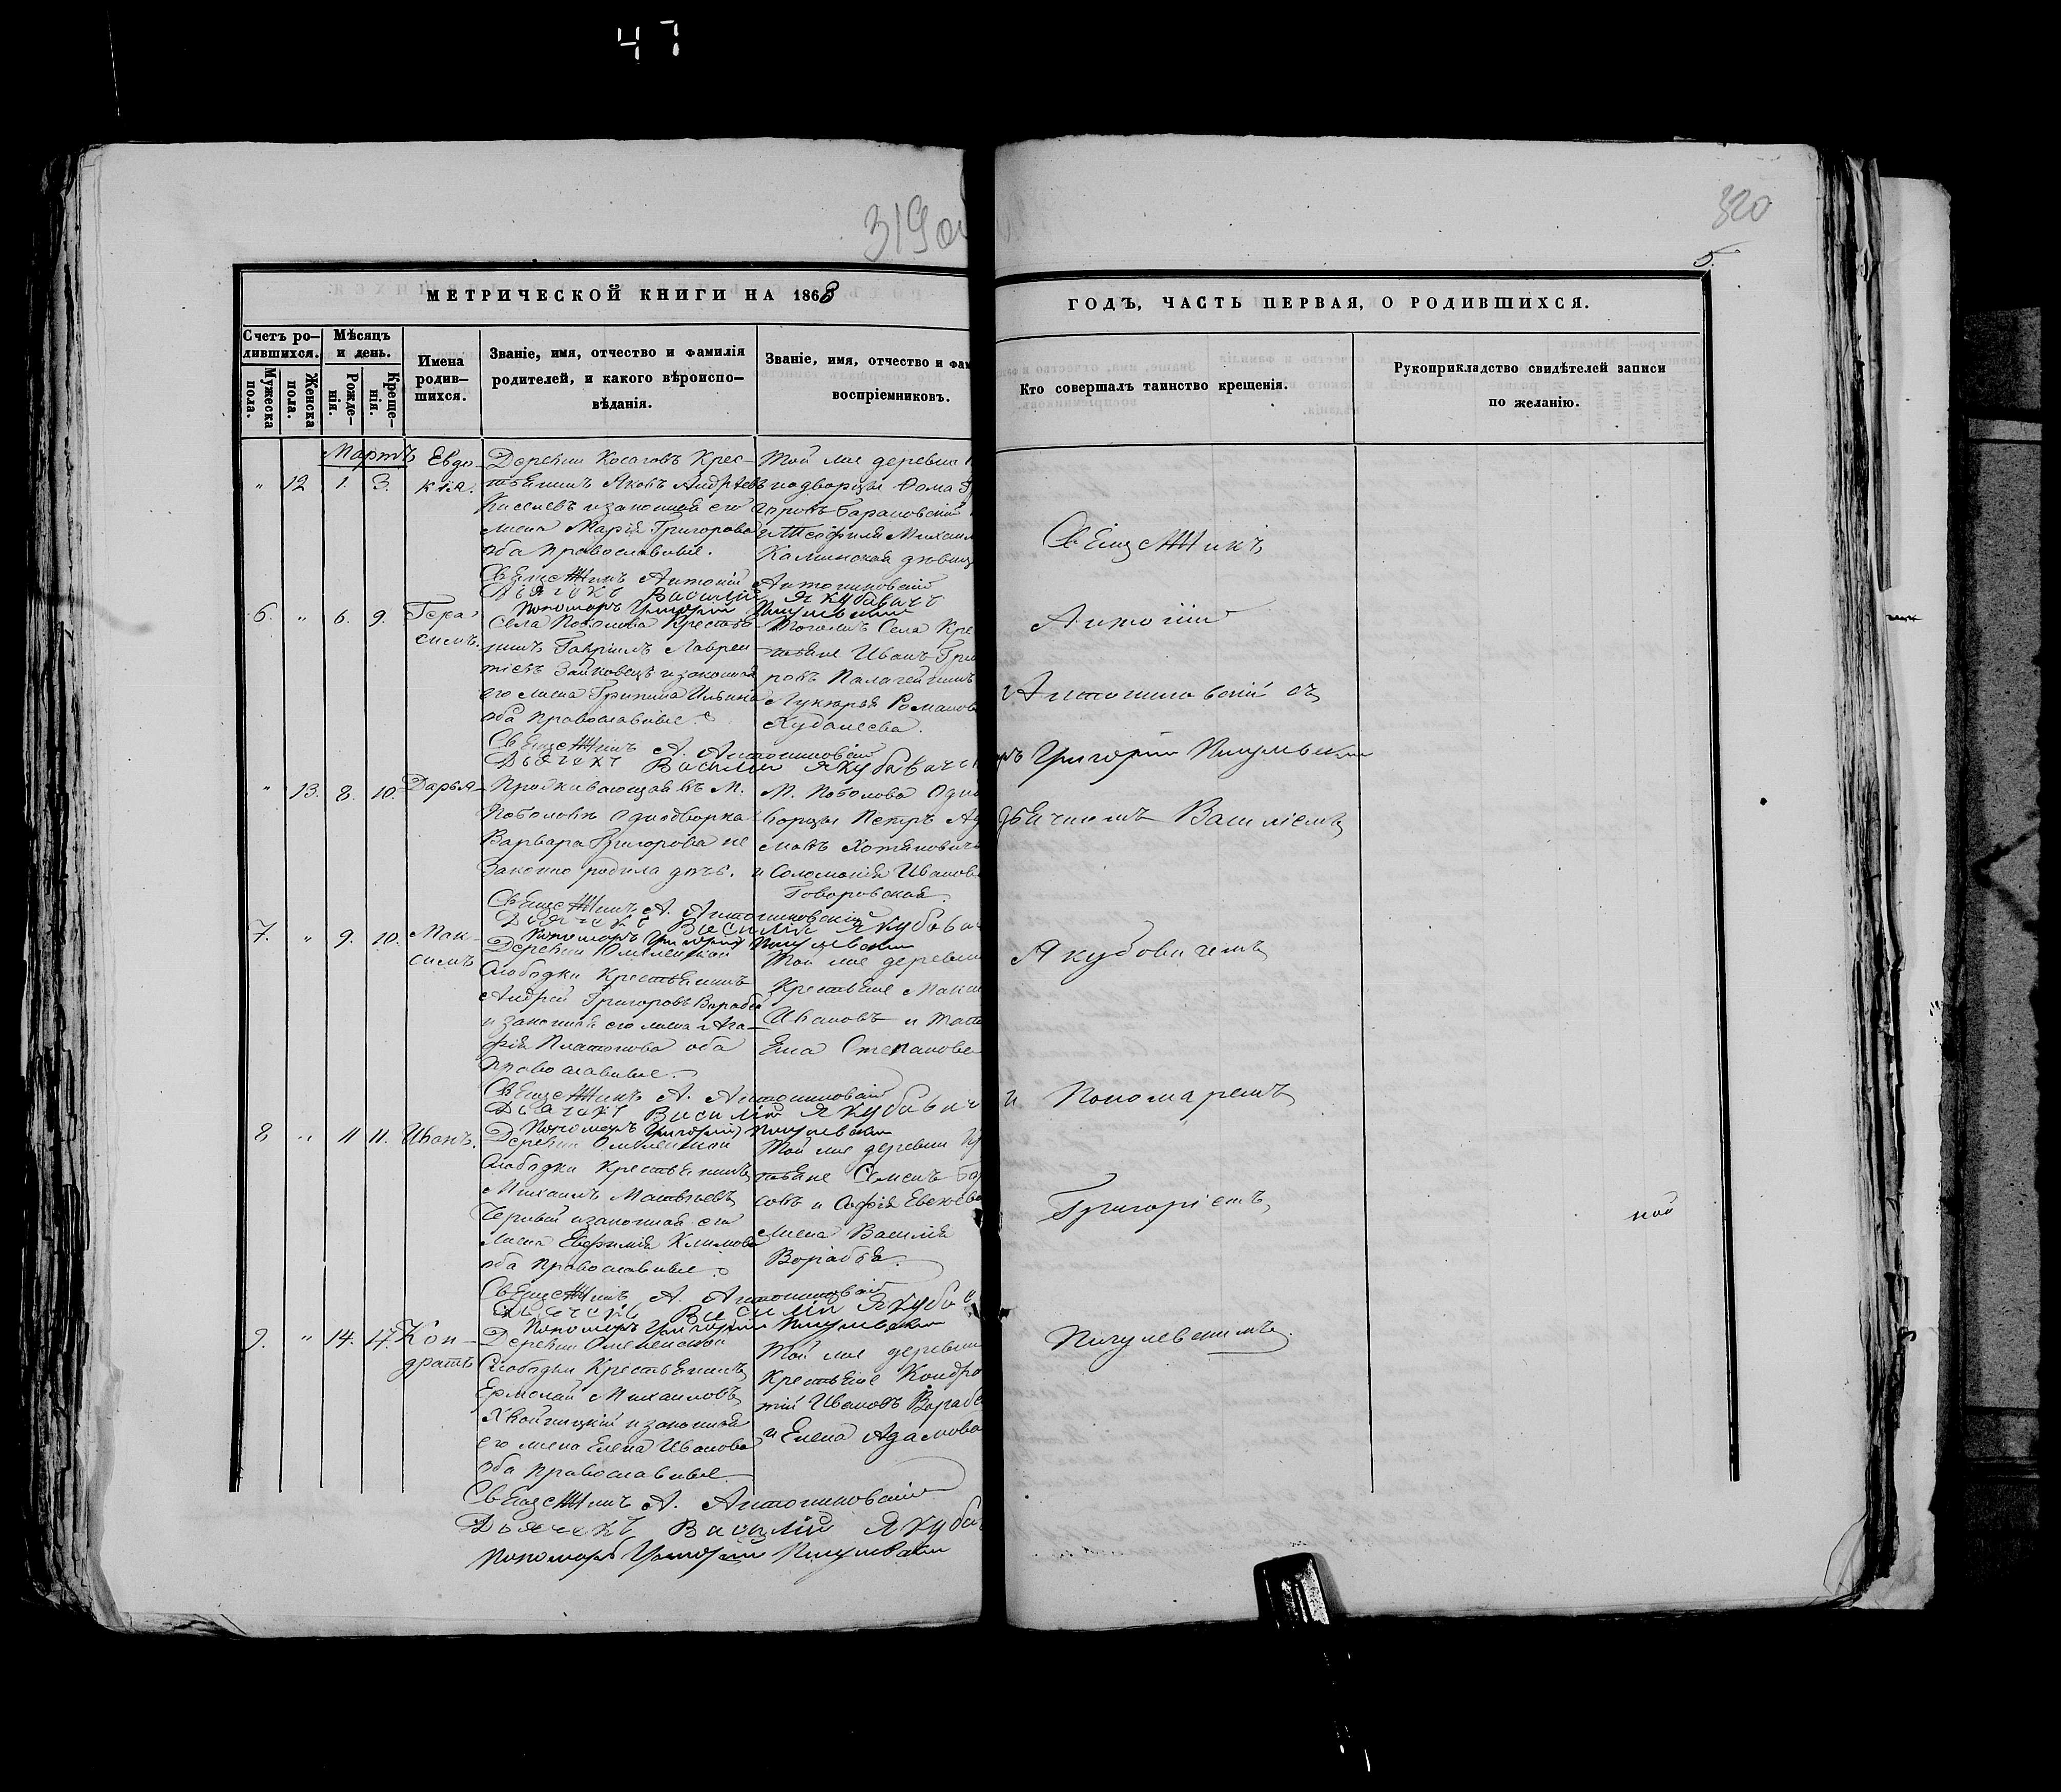 47
319 об
320
5.
МЕТРИЧЕСКОЙ КНИГИ НА 1868
ГОДЪ, ЧАСТЬ ПЕРВАЯ, О РОДИВШИХСЯ.
Счетъ ро–
дившихся.
Мужеска
пола.
Женска
пола.
Мѣсяцъ
и день.
Рожде–
нія.
Креще–
нія.
Имена
родив–
шихся.
Званіе, имя, отчество и фамилія
родителей, и какого вѣроиспо–
вѣданія.
Званіе, имя, отчество и фам
воспріемниковъ.
Кто совершалъ таинство крещенія.
Рукоприкладство свидѣтелей записи
по желанію.
Мартъ
" 12 1. 3. Евдо-
кія.
Деревни Косаговъ Крес-
тьянинъ Яковъ Андреевъ
Киселевъ и законная его
жена Марія Григорова
оба православные.
Той же деревни
нодворцы Фома
Барановскій
и Теофиля Михаил
Калинская девиц
Священникъ Антоній Антониновскій
Дьячекъ Василій Якубовичъ
Пономарь Григорій Пигулевскій
6. " 6. 9. Гера-
симъ.
Села Поболова Крестья-
нинъ Гавріилъ Лаврен-
тіевъ и законная
его жена Ильина
оба православные.
Тогожъ Села Кре
стьяне Иванъ Гри
ровъ
Лукерья Романов
Священникъ А. Антониновскій
Дьячекъ Василій Якубовичъ
рь Григорій Пигулевскій
" 13. 8. 10. Дарья
Проживающая въ М.
Поболовѣ Однодворка
Варвара Григорова не
законно родила дочь.
М. Поболова Одно
ворцы Петръ Ад
мовъ Хотяновичъ
и Соломонія Иванов
Говоровская.
Священникъ А. Антониновскій
Дьячекъ Василій Якубови
Пономарь Григорій Пигулевскій
7. " 9. 10. Мак-
симъ
Деревни
Слободки Крестьянинъ
Андрей Григоровъ Варабей
и законная его жена Ага-
фія Платонова оба
православные.
Той же деревни
Крестьяне Макси
Ивановъ и Тать
яна Степанова
Священникъ А. Антониновскій
Дьячекъ Василій Якубович
Пономарь Григорій Пигулевскій
8 " 11 11. Иванъ.
Деревни
Слободки Крестьянинъ
Михаилъ Матвеевъ
и законная его
жена Евфимія Климова
оба православные.
Той же деревни Кр
стьяне Семенъ Бор
совъ и Софія
жена Василія
Ворабья.
Священникъ А. Антониновскій
Дьячекъ Василій Якубов
Пономарь Григорій Пигулевскій
9. " 14. 17. Кон-
дратъ
Деревни
Слободки Крестьянинъ
Ермолай Михаиловъ
Хвойницкій и законная
его жена Елена Иванова
оба православные
Той же деревни
Крестьяне Кондра
тій Ивановъ Вараб
и Елена Адамова
Священникъ А. Антониновскій
Дьячекъ Василій Якубов
Пономарь Григорій Пигулевскій
Священникъ
Антоній
Антониновскій съ
дьячкомъ Василіемъ
Якубовичемъ
и Пономаремъ
Григоріемъ
Пигулевскимъ.
ной